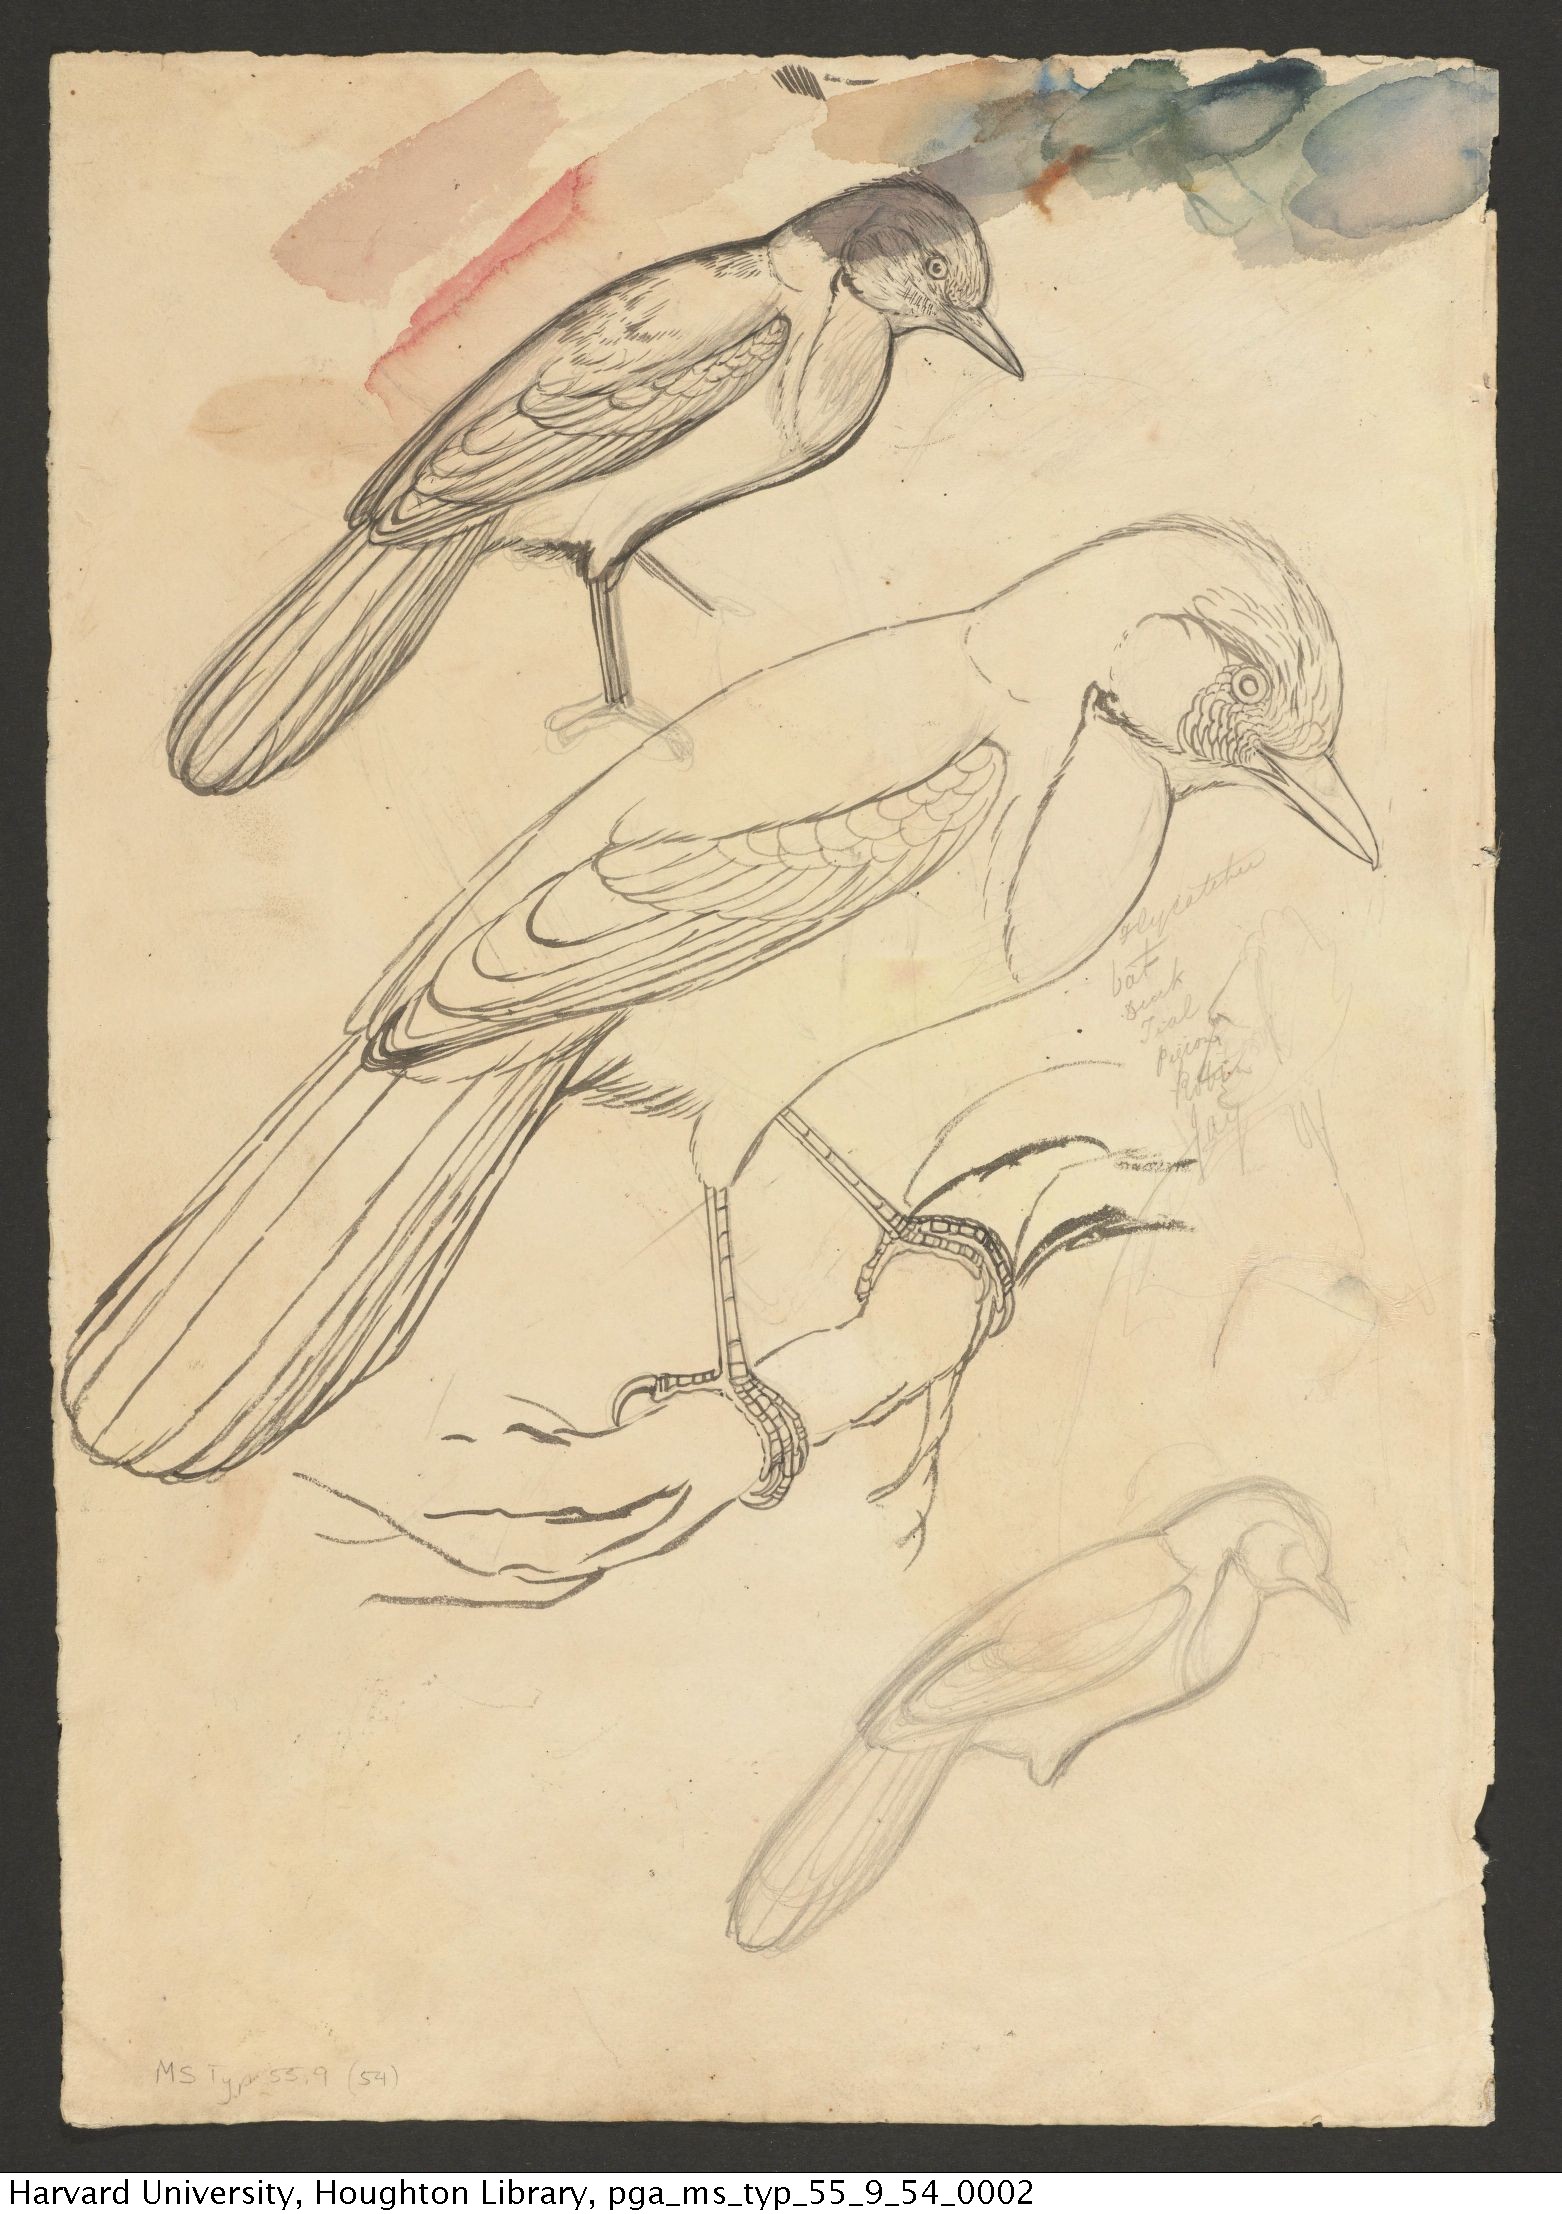 Flycatcher
bat
Duck
Tial
Robin
Jay
MS Typ 55.9 (54)
Harvard University, Houghton Library, pga_ms_typ_55_9_54_0002